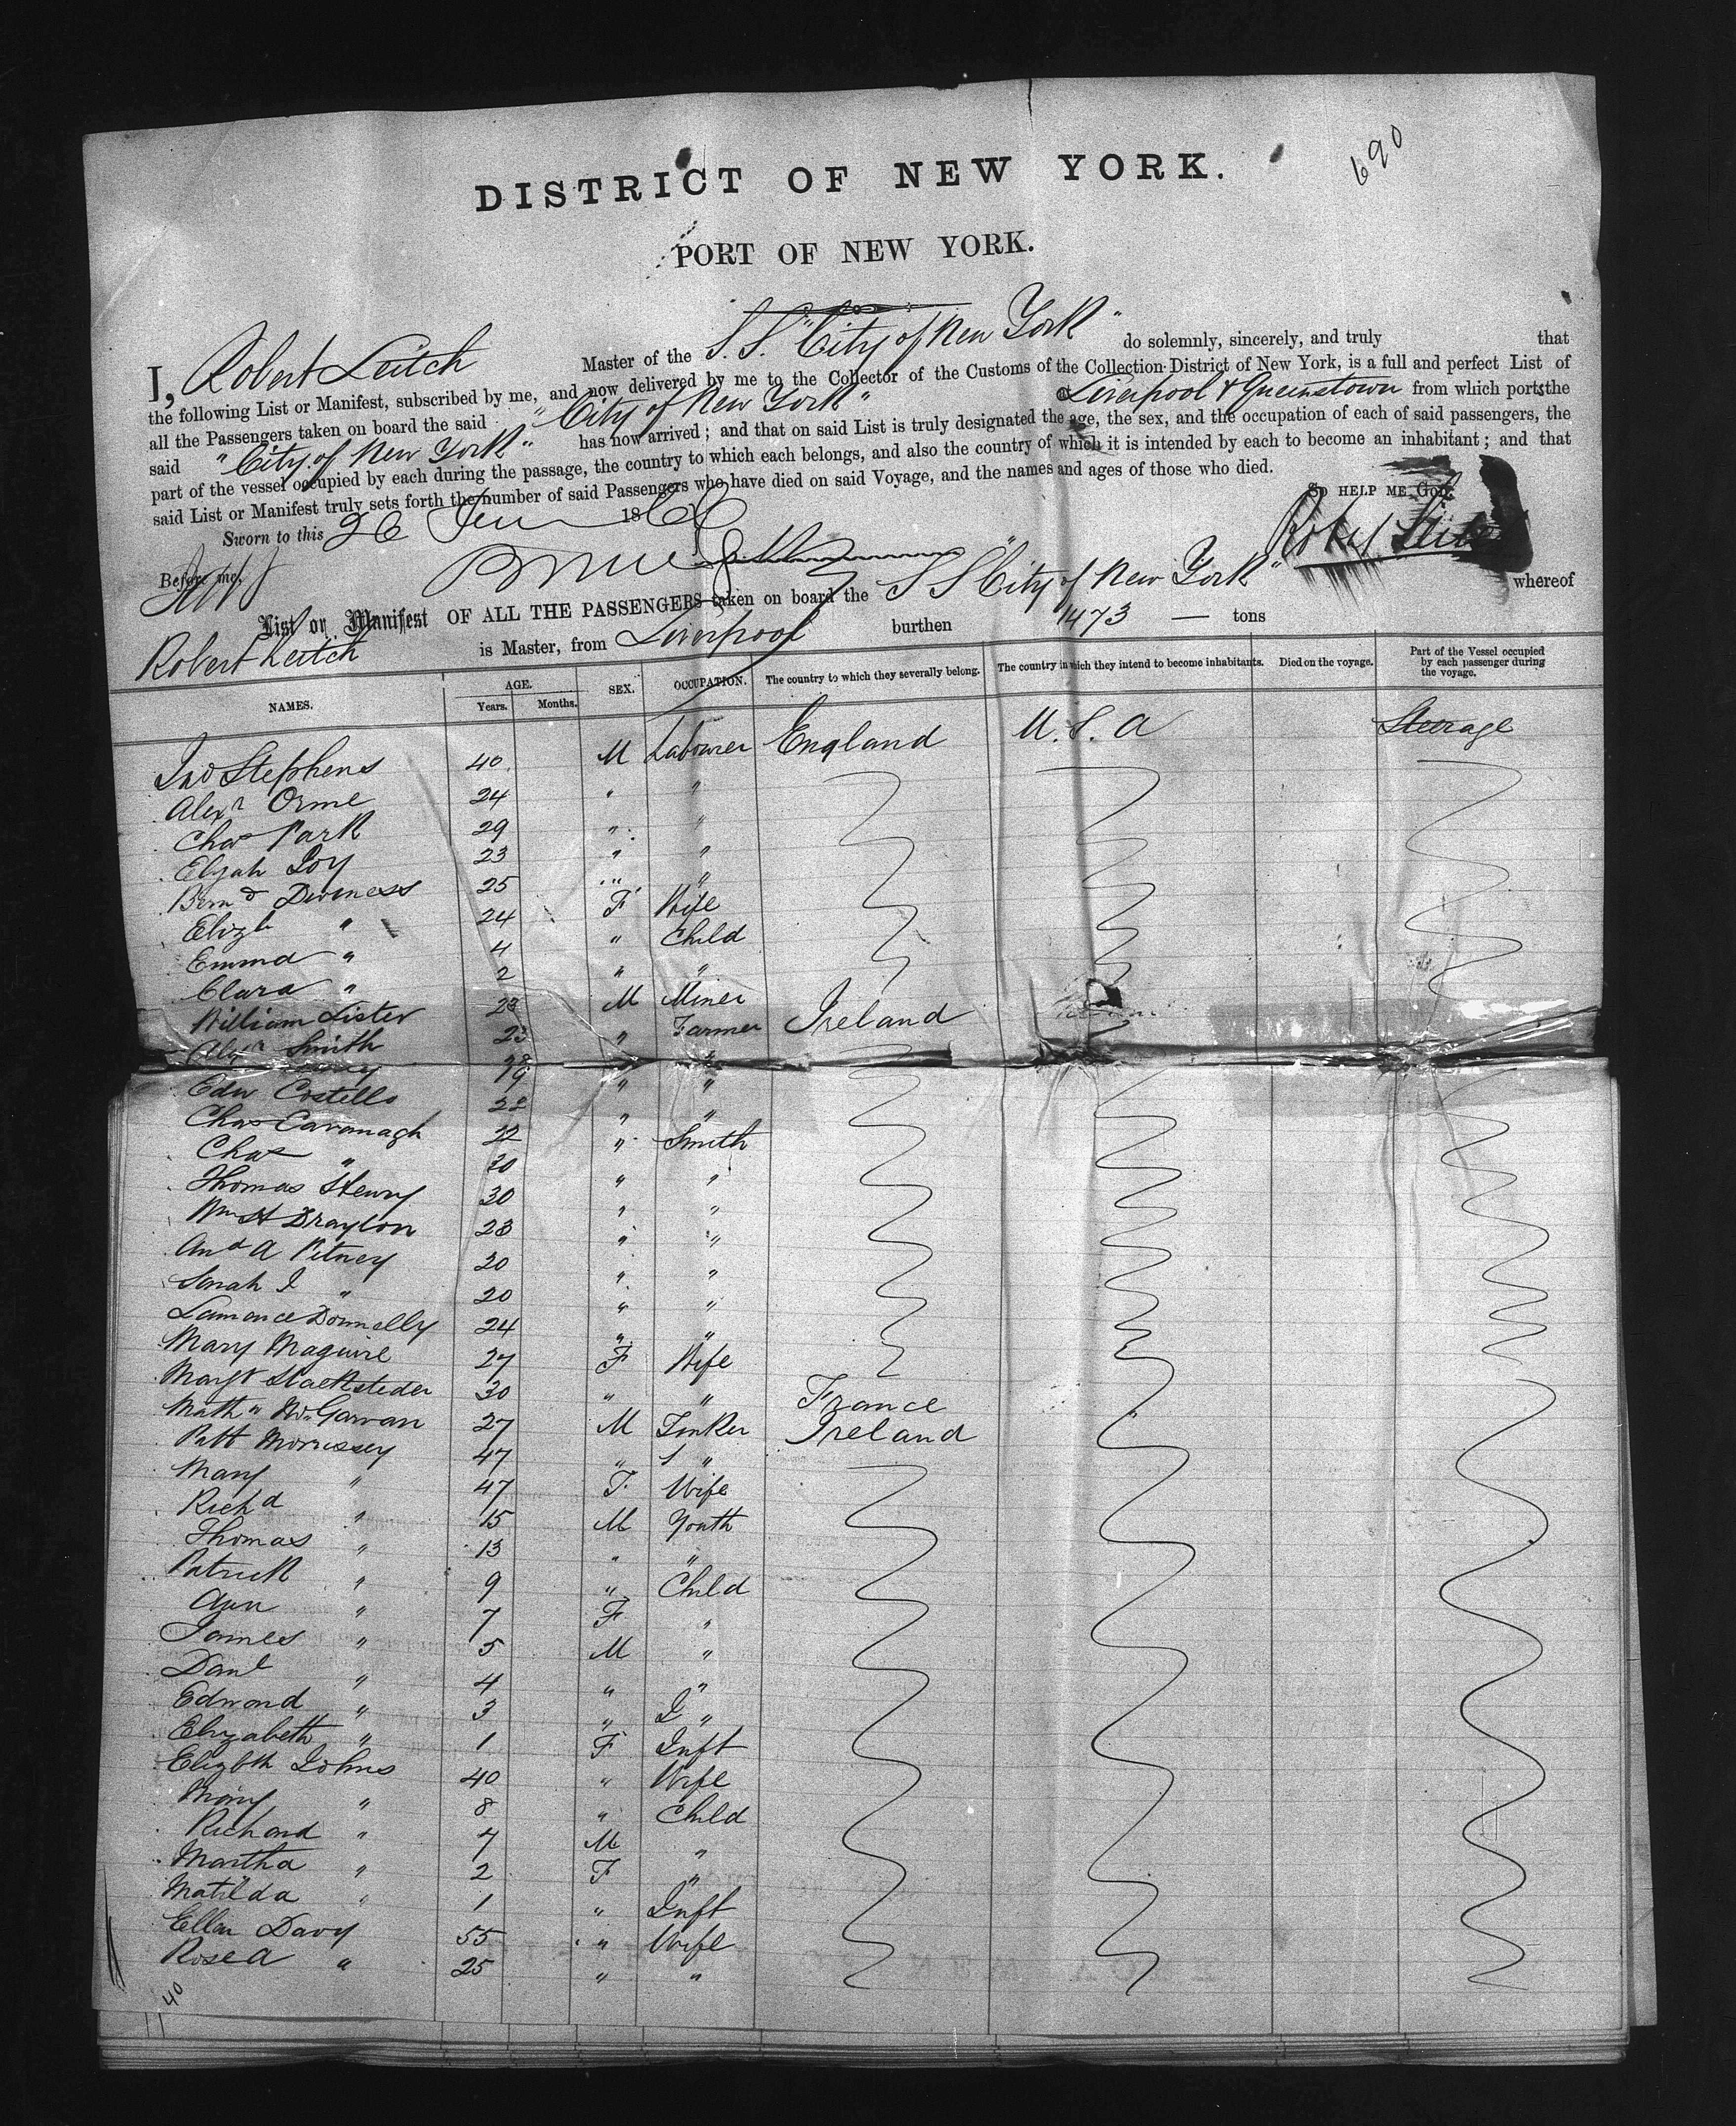 690
DISTRICT OF NEW YORK.
PORT OF NEW YORK.
I, Robert Leitch Master of the S.S. "City of New York" do solemnly, sincerely, and truly that
the following List or Manifest, subscribed by me, and now delivered by me to the Collector of the Customs of the Collection District of New York, is a full and perfect List of
all the Passengers taken on board the said "City of New York" at Liverpool & Queenstown from which ports the
said "City of New York" has now arrived; and that on said List is truly designated the age, the sex, and the occupation of each of said passengers, the
part of the vessel occupied by each during the passage, the country to which each belongs, and also the country of which it is intended by each to become an inhabitant; and that
said List or Manifest truly sets forth the number of said Passengers who have died on said Voyage, and the names and ages of those who died.
SO HELP ME GOD.
Sworn to this 26 18
Before me,
List or Manifest OF ALL THE PASSENGERS taken on board the S S "City of New York" whereof
Robert Leitch is Master, from Liverpool burthen 1473 — tons
NAMES. AGE. Years. Months. SEX. OCCUPATION. The country to which they severally belong. The country in which they intend to become inhabitants. Died on the voyage. Part of the Vessel occupied by each passenger during the voyage.
Jno Stephens 40 M Labourer England U.S.A Steerage
Alexr Orme 24 " "
Chas Park 29 " "
Elijah Joy 23 " "
25 " "
Elizh " 24 F Wife
Emma " 4 " Child
Clara " 2 " "
William Lister 23 M Miner
Alexr Smith 23 " Farmer Ireland
"
Edw Costello 19 " "
Chas Cavanagh 22 " "
Chas " 22 " Smith
Thomas Henry 30 " "
Wm H Drayton 30 " "
And A Pitney 23 " "
Sarah J " 20 " "
Lawrence Donnelly 20 " "
Mary Maguire 24 " "
27 F Wife
30 " " France
27 M Tinker Ireland
Patt Morrissey 47 " "
Mary " 47 F Wife
Richd " 15 M Youth
Thomas " 13 " "
Patrick " 9 " Child
Ann " 7 F "
James " 5 M "
Danl " 4 " "
Edmond " 3 " "
Elizabeth " 1 F Inft
Elizbth Johns 40 " Wife
Mary " 8 " Child
Richard " 7 M "
Martha " 2 F "
Matilda " 1 " Inft
Ellen Davy 55 " Wife
Rose A " 25 " "
40